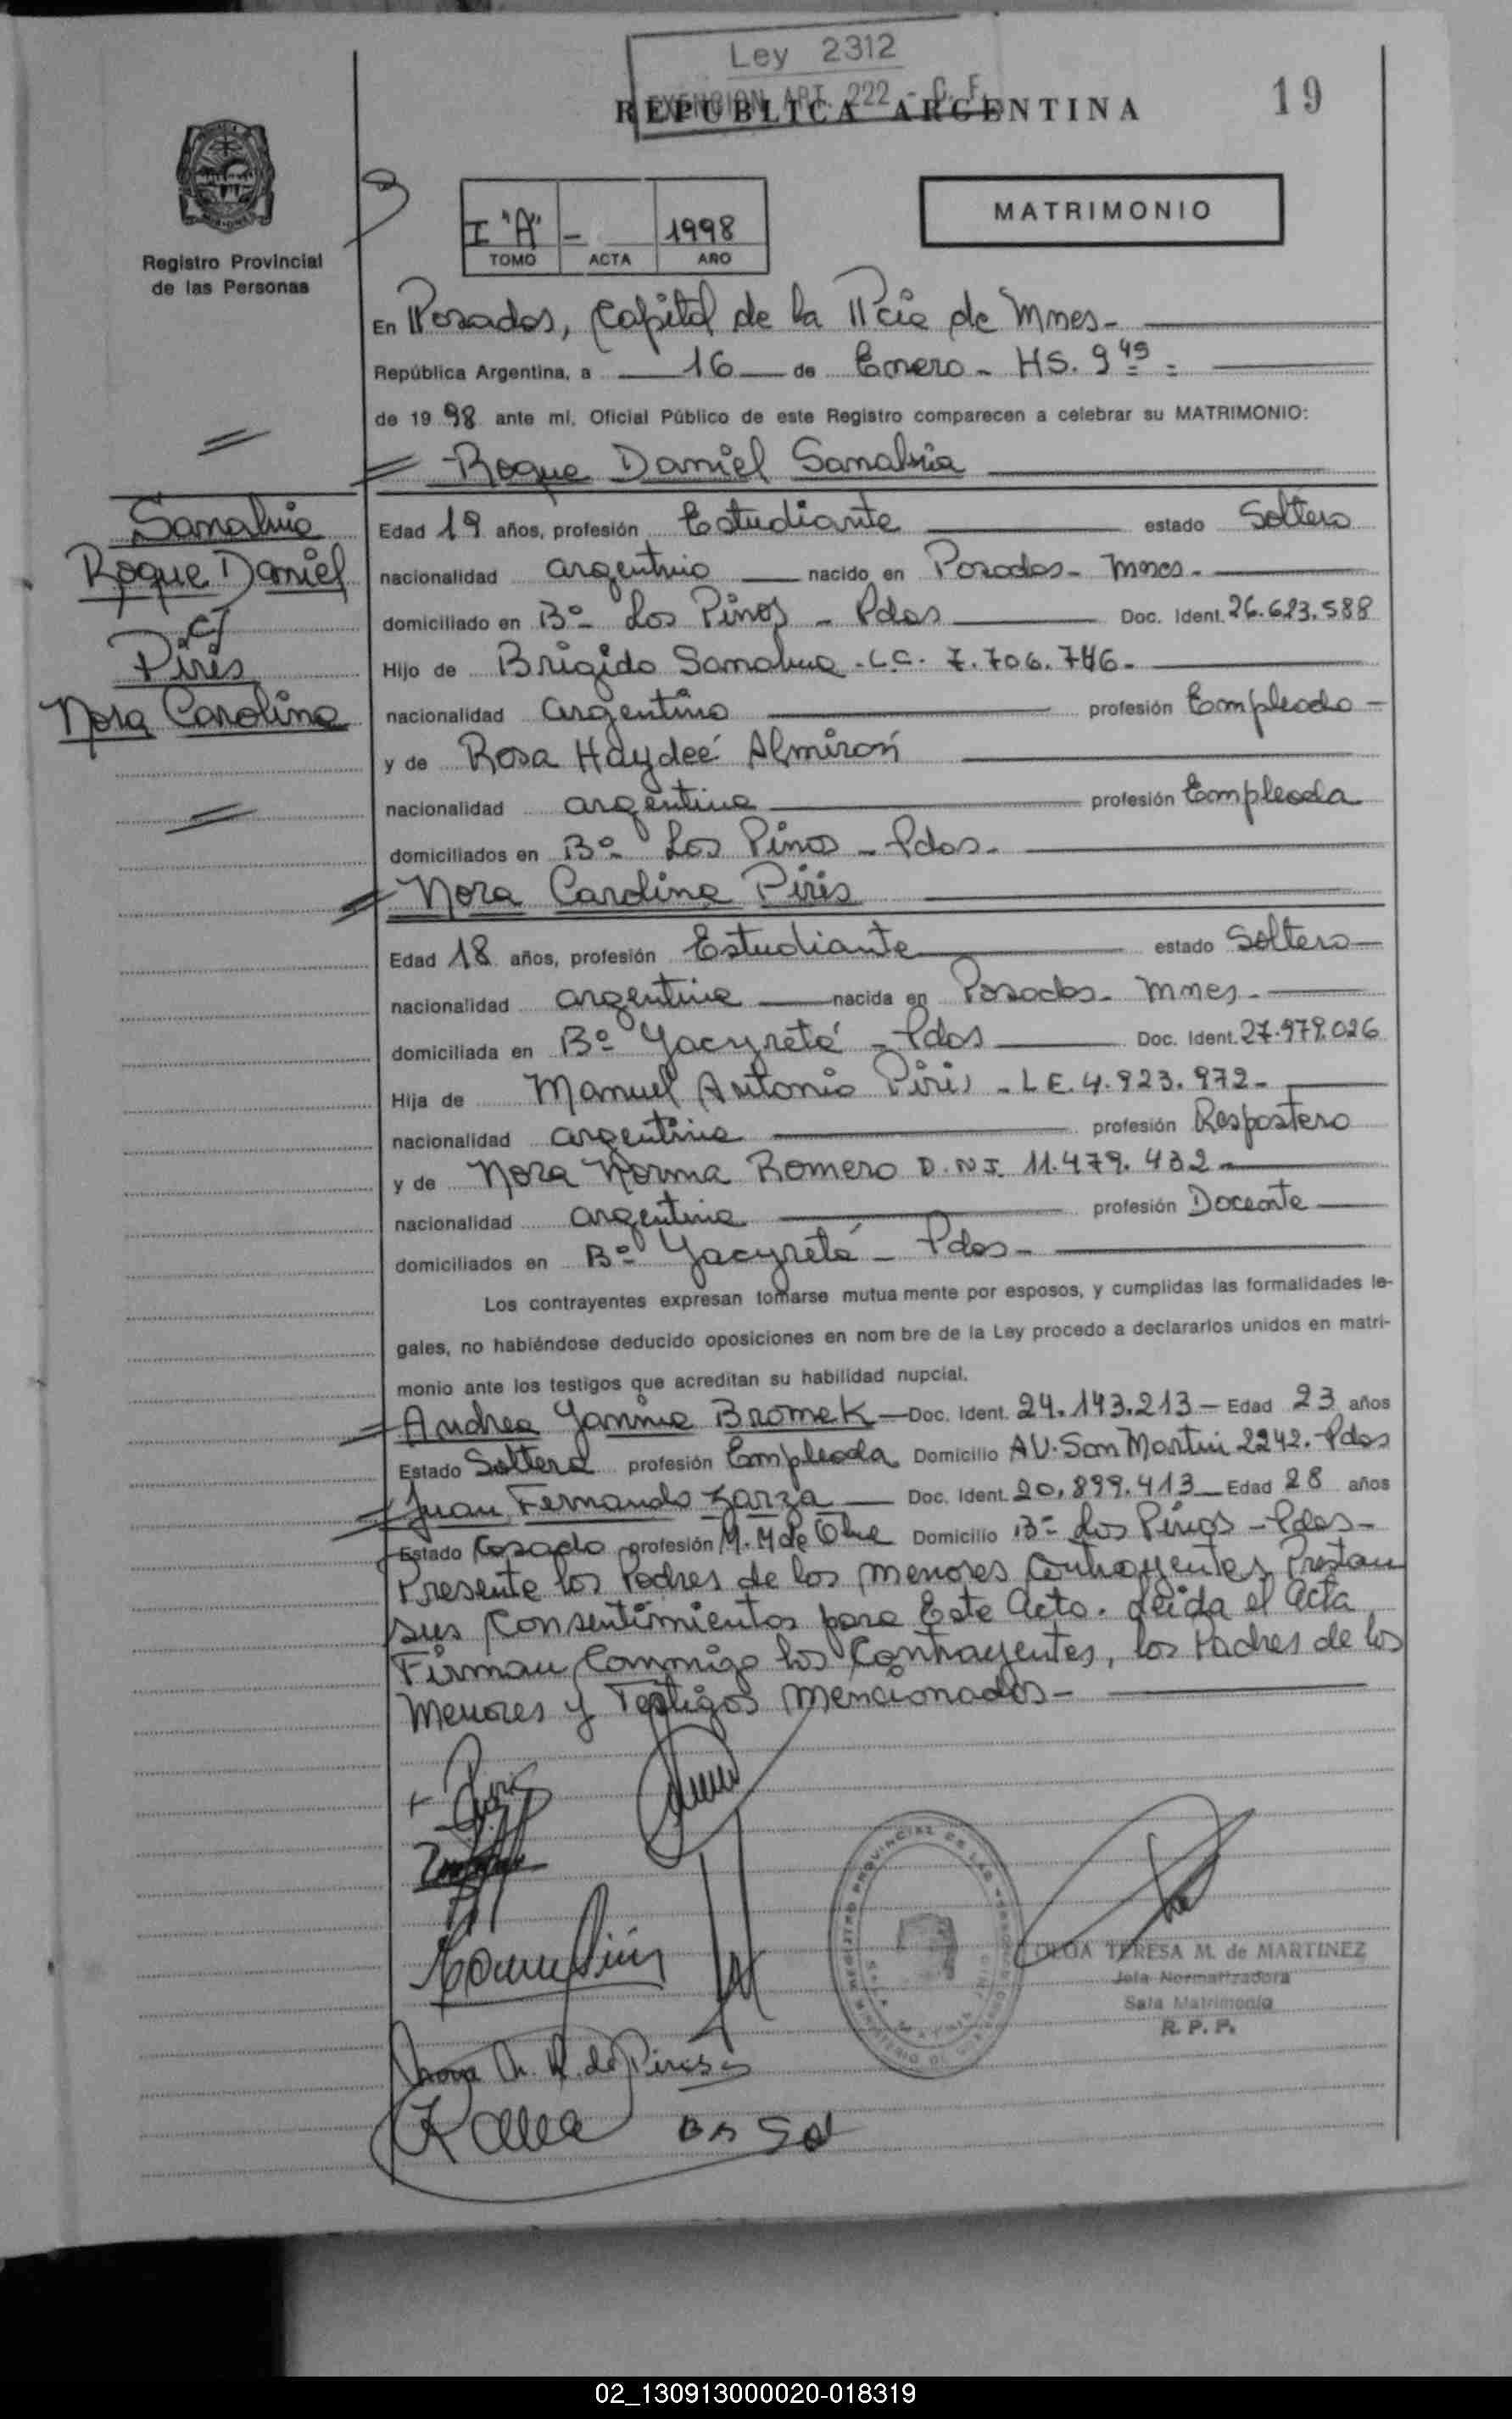 Ley 2312
EXENCION ART. 222 - C. F.
REPUBLICA ARGENTINA
19
Registro Provincial
de las Personas
I "A" - 1998
TOMO ACTA AÑO
MATRIMONIO
En Posadas, Capital de la Pcia de Mnes-
República Argentina, a 16 de Enero - HS. 9 45
de 1998 ante mí, Oficial Público de este Registro comparecen a celebrar su MATRIMONIO:
Roque Daniel Sanabria
Sanabria
Roque Daniel
c/
Piris
Nora Carolina
Edad 19 años, profesión Estudiante estado Soltero
nacionalidad argentino nacido en Posadas - Mnes -
domiciliado en B° Los Pinos - Pdas Doc. Ident. 26.623.588
Hijo de Brígido Sanabria - L.C. 7.706.746-
nacionalidad argentino profesión Empleado -
y de Rosa Haydeé Almirón
nacionalidad argentina profesión Empleada
domiciliados en B° Los Pinos - Pdas-
Nora Carolina Piris
Edad 18 años, profesión Estudiante estado Soltera
nacionalidad argentina nacida en Posadas - Mnes-
domiciliada en B° Yacyretá - Pdas Doc. Ident. 27.979.026
Hija de Manuel Antonio Piris - L E. 4.923.972-
nacionalidad argentina profesión Respostero
y de Nora Norma Romero D.N.I. 11.479.432-
nacionalidad argentina profesión Docente
domiciliados en B° Yacyretá - Pdas-
Los contrayentes expresan tomarse mutua mente por esposos, y cumplidas las formalidades le-
gales, no habiéndose deducido oposiciones en nom bre de la Ley procedo a declararlos unidos en matri-
monio ante los testigos que acreditan su habilidad nupcial.
Andrea Yanina Bromek - Doc. Ident. 24.143.213 - Edad 23 años
Estado Soltera profesión Empleada Domicilio AV. San Martín 2242. Pdas
Juan Fernando Zarza Doc. Ident. 20.899.413 Edad 28 años
Estado Casado profesión M. M de Obra Domicilio B° Los Pinos - Pdas-
Presente los Padres de los menores contrayentes, Prestan
sus Consentimientos para Este Acto. Leida el Acta
Firman Conmigo los Contrayentes, los Padres de los
Menores y Testigos mencionados-
OLGA TERESA M. de MARTINEZ
Jefa Normatizadora
Sala Matrimonio
R. P. P.
02_130913000020-018319